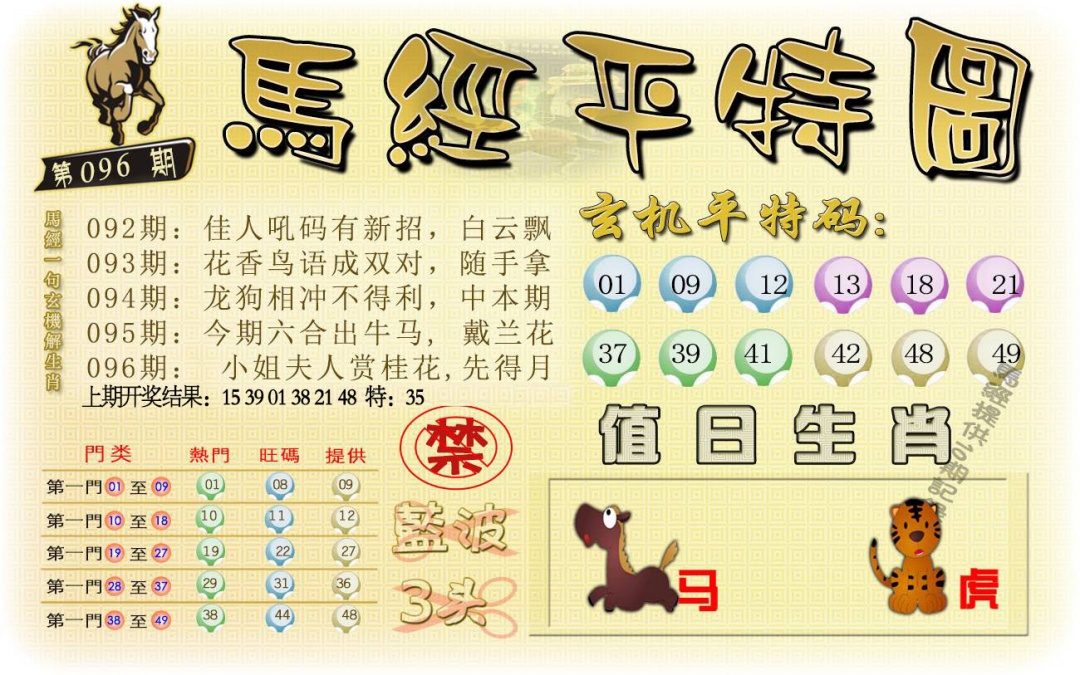 馬經平特圖
第096期
馬經一句玄機解生肖
092期：佳人吼码有新招，白云飘
093期：花香鸟语成双对，随手拿
094期：龙狗相冲不得利，中本期
095期：今期六合出牛马，戴兰花
096期：小姐夫人赏桂花,先得月
上期开奖结果：15 39 01 38 21 48 特：35
玄机平特码：
01 09 12 13 18 21
37 39 41 42 48 49
門类 熱門 旺碼 提供
第一門 01 至 09 01 08 09
第一門 10 至 18 10 11 12
第一門 19 至 27 19 22 27
第一門 28 至 37 29 31 36
第一門 38 至 49 38 44 48
禁
藍波
3头
值日生肖
马 虎
馬經提供
期記